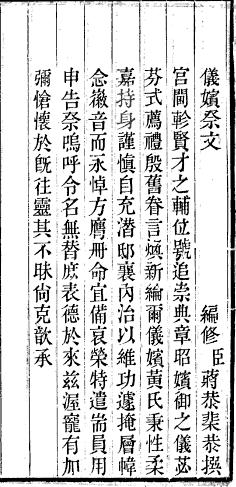 儀嬪祭文
編修臣蔣恭棐恭撰
宮闈軫賢才之輔位號追崇典章昭嬪御之儀苾
芬式薦禮殷舊眷言煥新綸爾儀嬪黃氏秉性柔
嘉持身謹愼自充潛邸襄內治以維功遽掩層幃
念徽音而永悼方膺冊命宜備哀榮特遣耑員用
申告奈嗚呼令名無替庶表德於來兹渥寵有加
彌愴懷於旣往靈其不昧尙克歆承